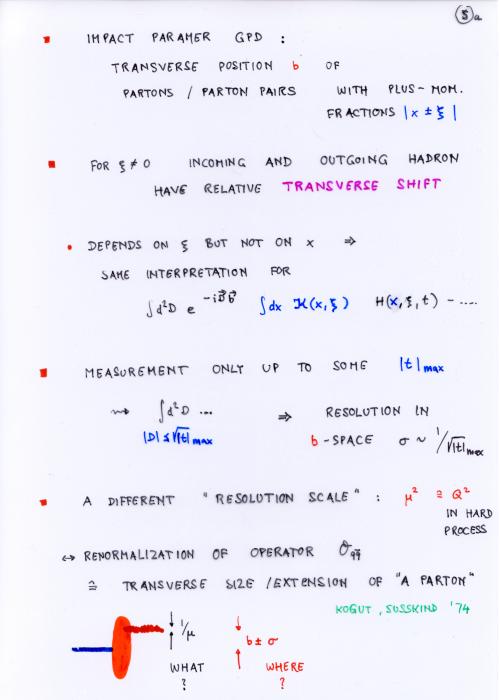 5a
IMPACT PARAMER GPD :
TRANSVERSE POSITION b OF
PARTONS / PARTON PAIRS WITH PLUS-MOM.
FRACTIONS |x ± ξ|
FOR ξ ≠ 0 INCOMING AND OUTGOING HADRON
HAVE RELATIVE TRANSVERSE SHIFT
DEPENDS ON ξ BUT NOT ON x ⇒
SAME INTERPRETATION FOR
∫d²D e^{-iD⃗b⃗} ∫dx K(x,ξ) H(x,ξ,t) - ....
MEASUREMENT ONLY UP TO SOME |t|max
⇝ ∫d²D ... ⇒ RESOLUTION IN
|D| ≤ √|t|max b-SPACE σ ~ 1/√|t|max
A DIFFERENT "RESOLUTION SCALE" : μ² ≅ Q²
IN HARD
PROCESS
↔ RENORMALIZATION OF OPERATOR O_{qq̄}
≙ TRANSVERSE SIZE / EXTENSION OF "A PARTON"
KOGUT, SUSSKIND '74
1/μ b ± σ
WHAT WHERE
? ?